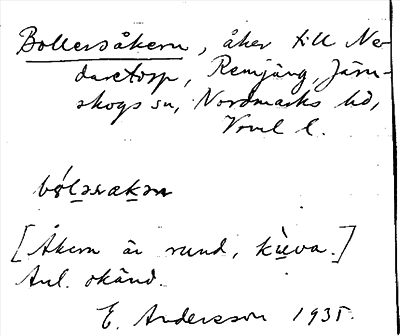 Bollersåkern, åker till Ne-
daretorp, Remjäng, Järn-
skogs sn, Nordmarks hd,
Vrml l.
bǿləsakən
[Åkern är rund, kùva.]
Anl. okänd.
E. Andersson 1935.